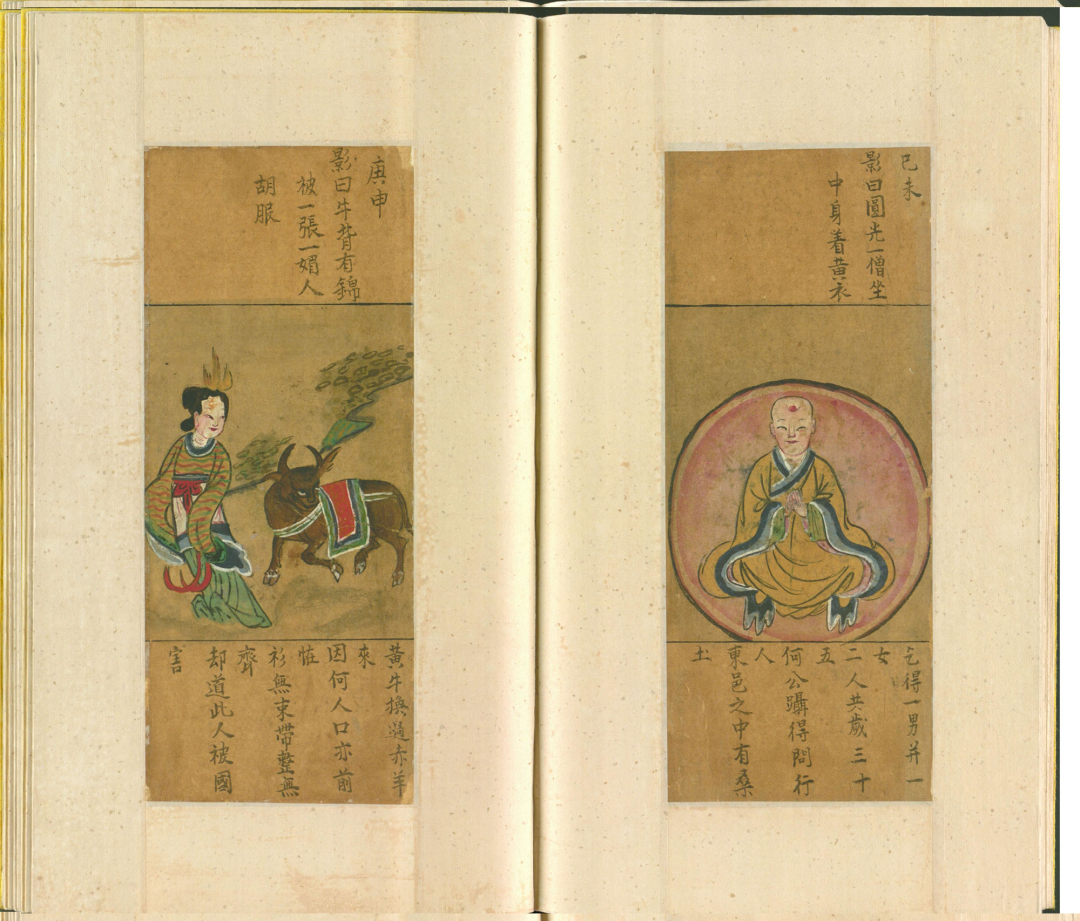 己未
影曰圓光一僧坐
中身着黄衣
乞得一男并一
女
二人共歲三十
五
何公躡得問行
人
東邑之中有桑
土
庚申
影曰牛背有錦
被一張一媚人
胡服
黃牛換過赤羊
來
因何人口亦前
恠
衫無束帶整無
齊
却道此人被國
害